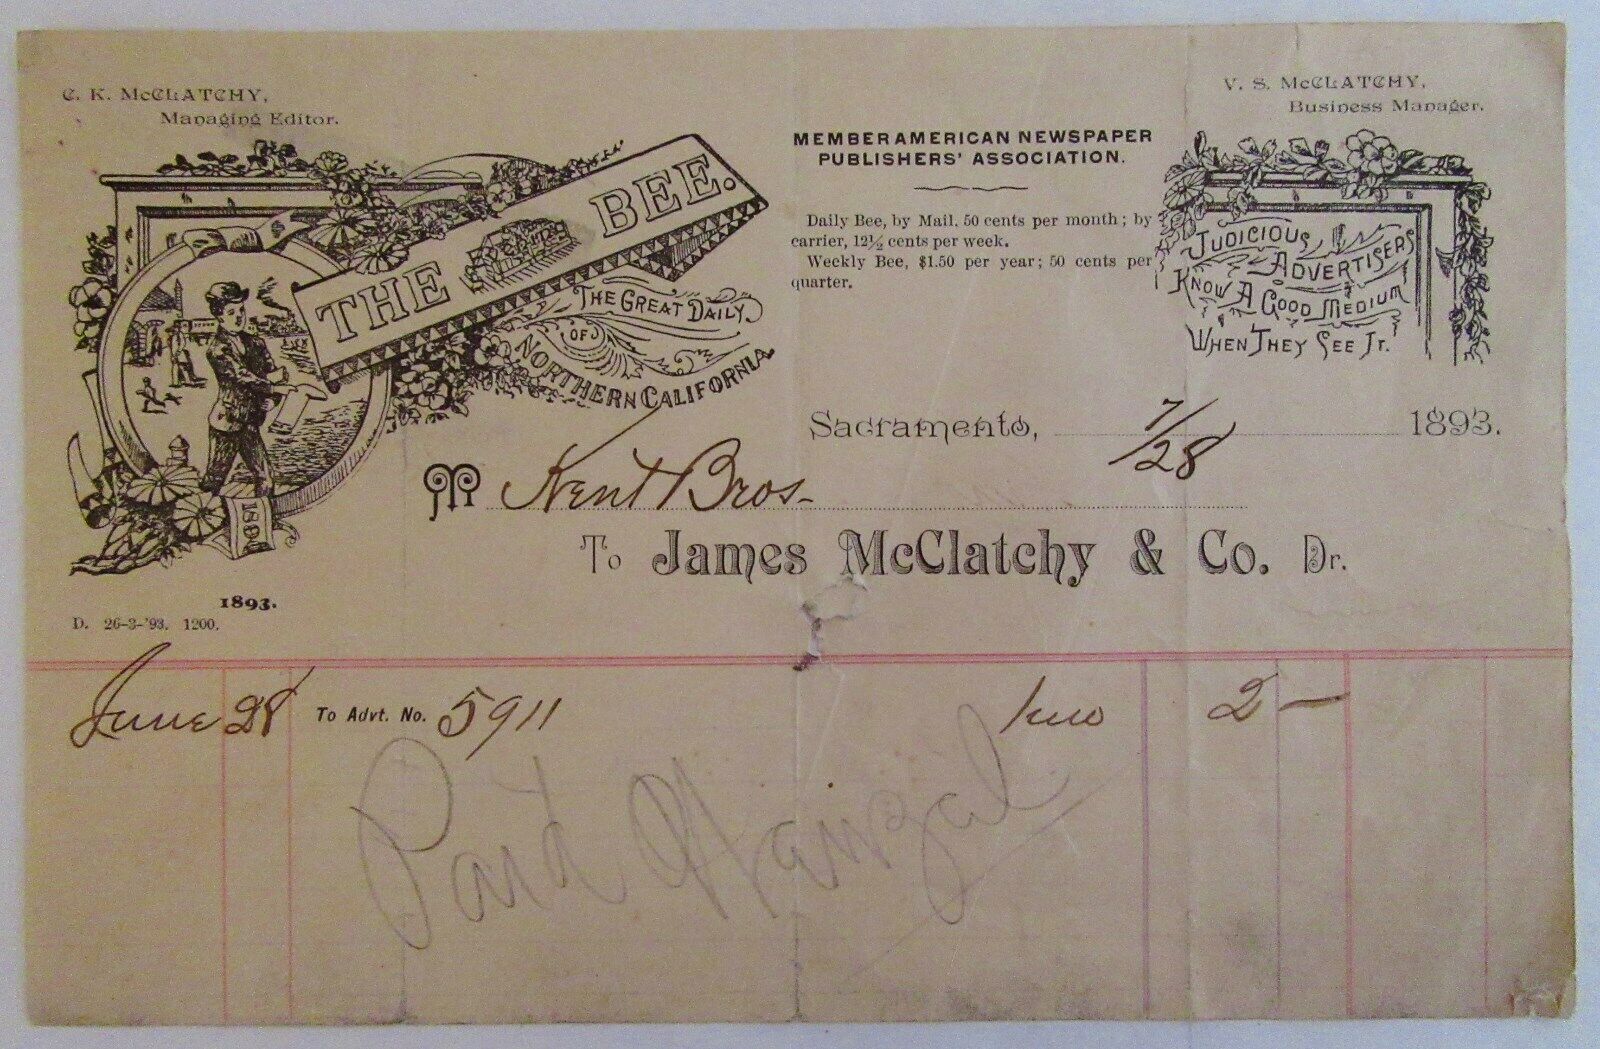 C. K. McCLATCHY,
Managing Editor.
V. S. McCLATCHY,
Business Manager.
THE BEE.
THE GREAT DAILY
OF
NORTHERN CALIFORNIA
MEMBER AMERICAN NEWSPAPER
PUBLISHERS' ASSOCIATION.
Daily Bee, by Mail, 50 cents per month; by
carrier, 12½ cents per week.
Weekly Bee, $1.50 per year; 50 cents per
quarter.
JUDICIOUS
ADVERTISERS
KNOW A GOOD MEDIUM
WHEN THEY SEE IT.
Sacramento, 7/28 1893.
M Kent Bros.
To James McClatchy & Co. Dr.
1893.
D. 26-3-'93. 1200.
June 28 To Advt. No. 5911 2 –
Paid